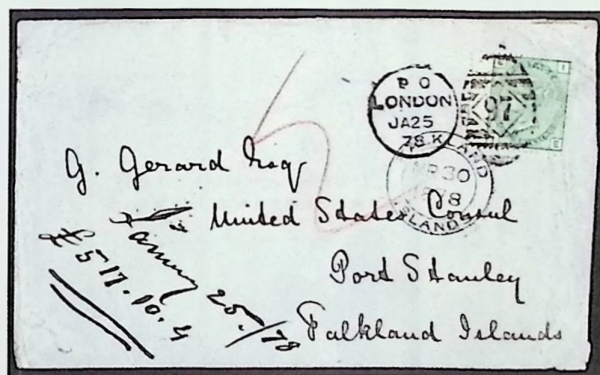 P O
LONDON
JA25
78 K
97
I
E
FALKLAND
30
1878
ISLANDS
G. Gerard Esq
United States Consul
Port Stanley
Falkland Islands
January 25./78
£517.10.4